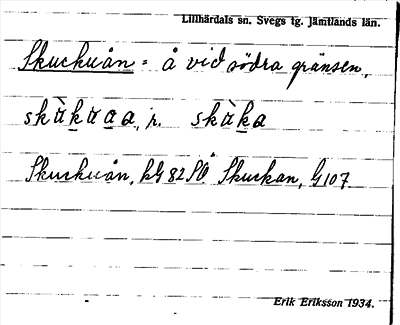 Lillhärdals sn. Svegs tg. Jämtlands län.
Skuckuån = å vid södra gränsen.
skàkaa, r. skàka
Skuckuån, kG 82 SO Skuckan, G107
Erik Eriksson 1934.